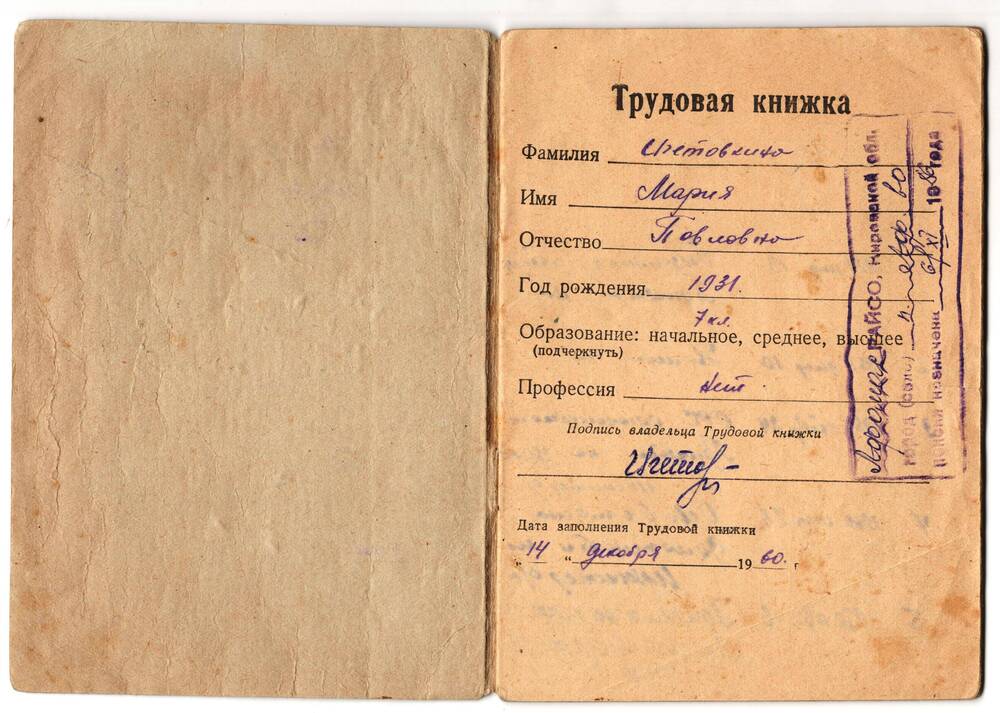 Трудовая книжка
Фамилия
Имя Мария
Отчество Павловна
Год рождения 1931.
7 кл.
Образование: начальное, среднее, высшее
(подчеркнуть)
Профессия нет.
Подпись владельца Трудовой книжки
Дата заполнения Трудовой книжки
„ 14 “ декабря 19 60. г
РАЙСО, Кировской обл.
город (село)
пенсия назначена XI 198 года